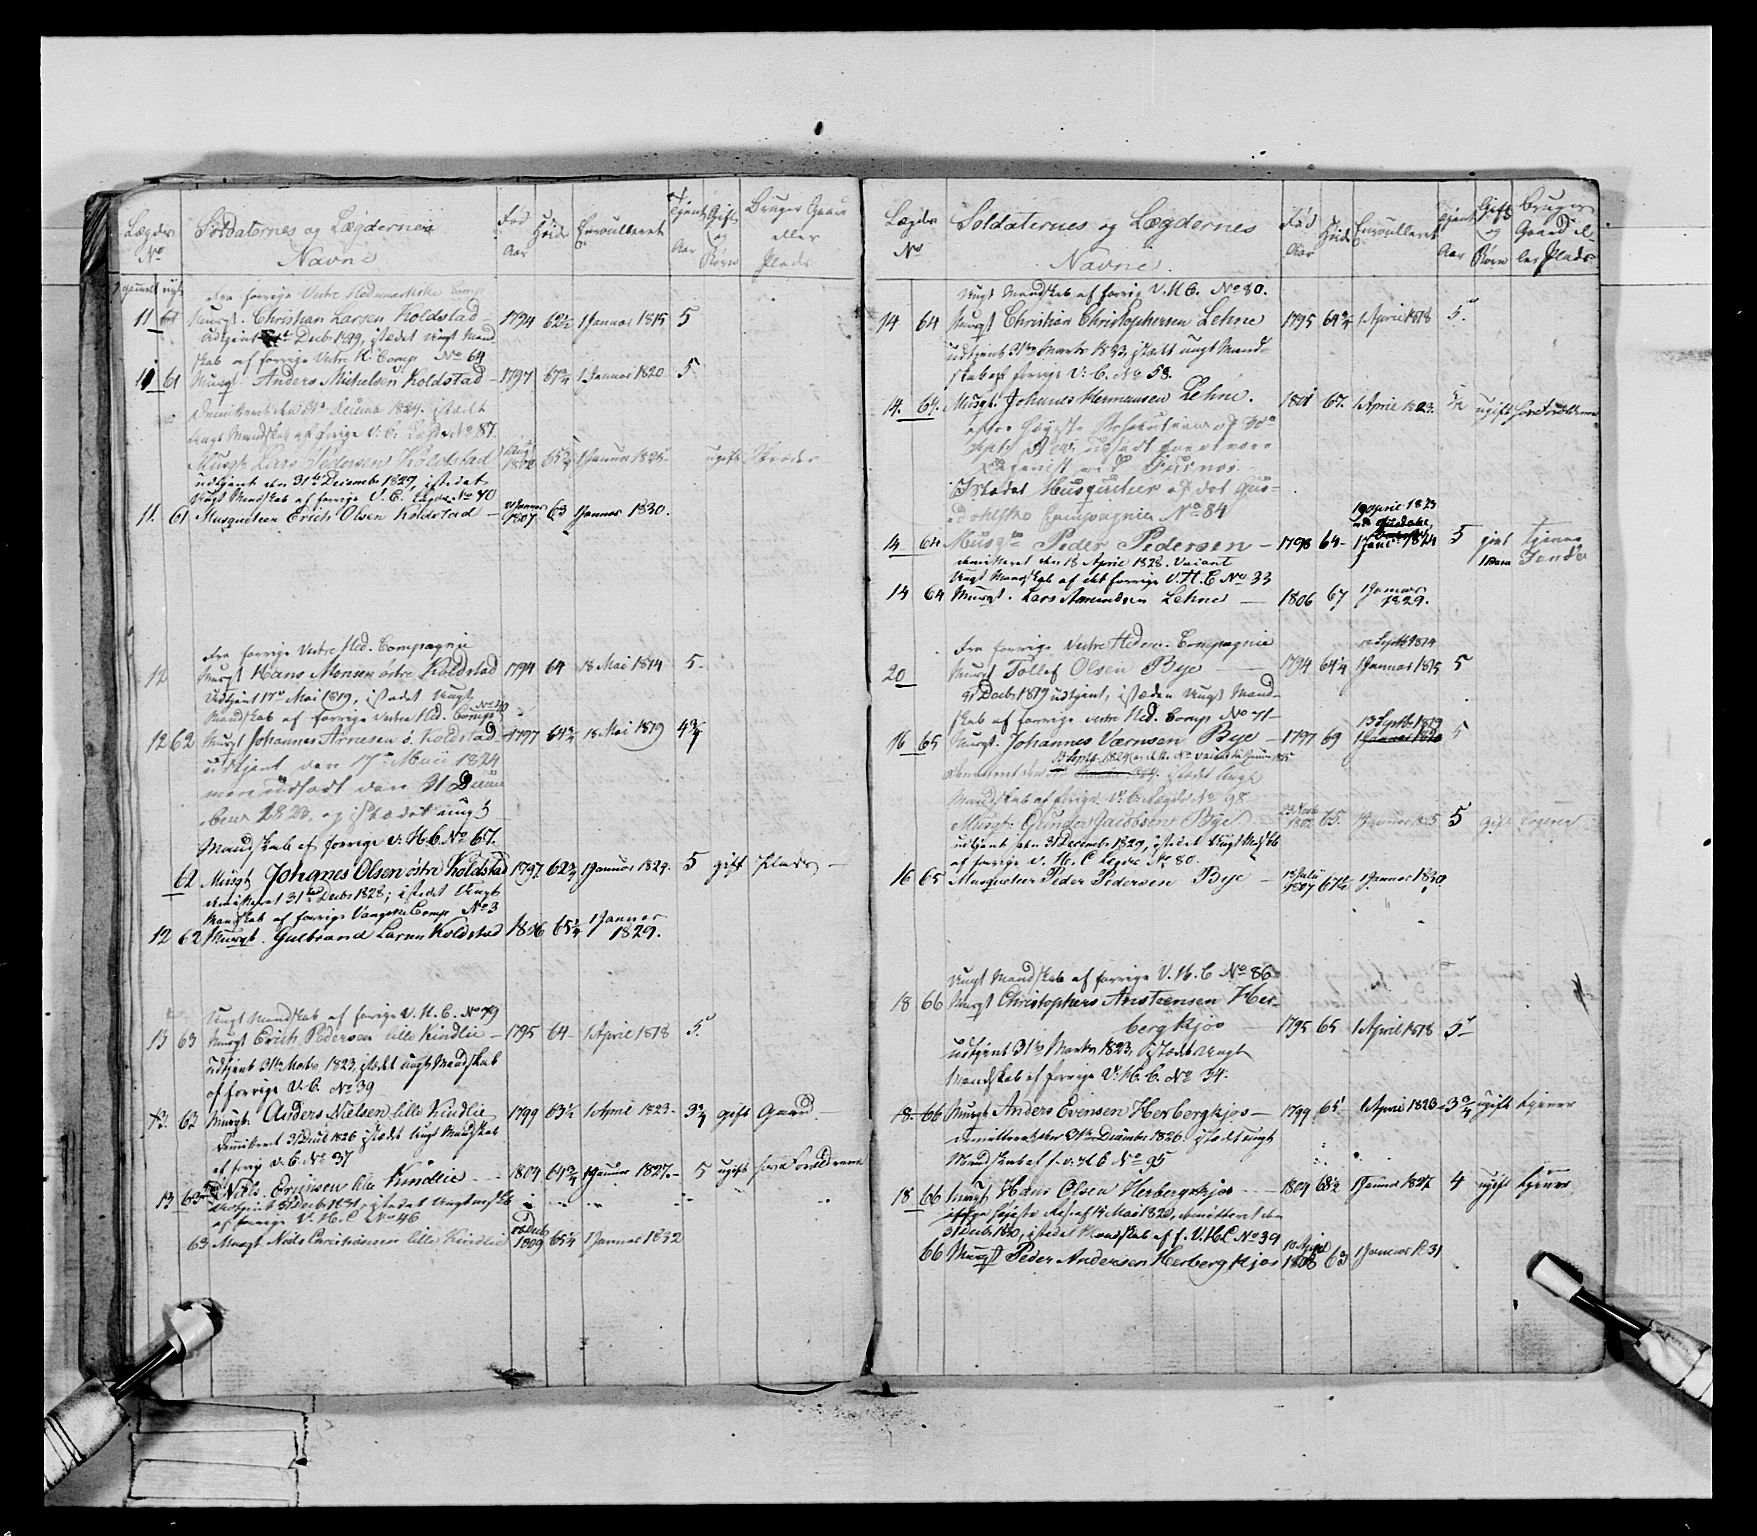 Lægder
No
Soldaternes og Lægdernes
Navne
Fød
Aar
Høide
Enroulleret
Tjent
Aar
Gift
og
Børn
Bruger Gaard
eller
Plads
gammelt nye
Fra forrige Vestre Hedemarkske Comp
11 61 Musqt. Christian Larsen Koldstad 1794 62½ 1 Januar 1815 5
Udtjent Decbr 1819, istedet Ungt Mand
skab af forrige Vestre H. Comp No 64
11 61 Musqt. Anders Michelsen Koldstad 1797 67¾ 1 Januar 1820 5
Demitteret den 31te Decemb 1824. istedt
Ungt Mandskab af forrige V. C. Lægd No 87.
Musqt. Lars Pedersen Koldstad 1802 65¾ 1 Januar 1825 ugift
udtjent den 31te December 1829, istedet
Ungt Mandskab af forrige V. C. Lægde No 40
11. 61 Musqueteer Erich Olsen Koldstad 21 Januar 1807 63 1 Januar 1830.
Fra forrige Vestre Hed. Compagnie
12 Musqt Hans Monsen østre Koldstad 1794 64 18 Mai 1814 5
Udtjent 17de Mai 1819, istedet Ungt
Mandskab af forrige Vestre Hed. Comp No 40
12 62 Musqt Johannes Arnesen ø. Koldstad 1797 64¾ 18 Mai 1819 4¾
udtjent den 17de Maii 1824
men udsadt den 31 Decem
ber 1823, og istædet ungt
Mandskab af forrige V. H. C. No 67.
62 Musqt Johannes Olsen østre Koldstad 1797. 62¾ 1 Januar 1824. 5 gift Plads
demitteret 31te Decbr 1828, istedet Ungt
Mandskab af forrige Vangske Comp. No 3
12 62 Musqt. Gulbrand Larsen Koldstad 1806 65¼ 1 Januar 1829.
Ungt Mandskab af forrige V. H. C. No 79
13 63 Musqt Erich Pedersen lille Kindlie 1795 64 1 April 1818 5.
Udtjent 31te Marts 1823, istedet ungt Mandskab
af forrige V. C. No 39
13. 63 Musqt: Anders Nielsen lille Kindlie 1799 63½ 1 April 1823 3¾ gift Gaard
Demitteret 31 Decbr 1826 istedet Ungt Mandskab
af forrige V. C. No 37
13 63 Niels Erichsen lille Kindlie 1804 64¾ 1 Januar 1827. 5 ugift hos Forældrene
udtjent 31 Decbr 1831, istedet Ungt Mdskb
af forrige V. H. C No 46
63 Musqt Niels Christiansen lille Kindlie 1809 65¼ 1 Januar 1832
Lægder
No
Soldaternes og Lægdernes
Navne.
Fød
Aar
Høide
Enroulleret
Tjent
Aar
Gift
og
Børn
Bruger
Gaard el-
ler Plads
Ungt Mandskab af forrige V. H. C. No 80.
14 64 Musqt Christian Christophersen Lehne 1795 69¾ 1 April 1818 5.
udtjent 31te Marts 1823, istedt ungt Mand-
skab af forrige V. C. No 58.
14. 64. Musqt. Johannes Hermansen Lehne. 1801 67. 1 April 1823. ugift hos Forældrene
Istedet Musqueteer af det
Compagnie No 84
14 64 Musqt Peder Pedersen 1798 64 19 April 1823 1 Jan: 1824 5 gift 1 Barn tjener
demitteret den 18 April 1828. Vacant
Ungt Mandskab af det forrige V. H. C No 33
14 64 Musqt. Lars Amundsen Lehne 1806 67 1 Januar 1829.
Fra forrige Vestre Hedem. Compagnie
20 Musqt Tollef Olsen Bye 1794 64¼ 12 Septb 1814 1 Januar 1815 5
31 Decbr 1819 udtjent, isteden Ungt Mand-
skab af forrige vestre Hed. Comp No 71
16 65 Musqt. Johannes Værnsen Bye 1797 69 13 Septbr 1819 1 Januar 1820 5
Mandskab af forrige V. C. Lægde No 98
Musqt. Gunder Jacobsen Bye 1802 65. 1 Januar 1825 5 gift
udtjent den 31 December 1829, istedet Ungt Mdskb
af forrige V. H. C Lægde No 80.
16 65 Musqueteer Peder Pedersen Bye 13 Julii 1807 67½ 1 Januar 1830
Ungt Mandskab af forrige V. H. C No 86
18 66 Musqt Christophers Anstensen Her-
berg kjos 1795 65 1 April 1818 5
udtjent 31te Marts 1823, istædt Ungt
Mandskab af forrige V. H. C. No 34.
18. 66 Musqt Anders Evensen Herbergkjos 1799 65 1 April 1823 3¾ ugift tjener
demitteret den 31te Decembr 1826. istedt ungt
Mandskab af f. V. H C No 95
18 66 Musqt Hans Olsen Herbergkjos 1804 68½ 1 Januar 1827 4 ugift tjener
ifølge høieste Res. af 14 Mai 1820, demitteret den
31 Decbr 1830, istedet Mandskab af f. V. H C No 39
66 Musqt Peder Andersen Herberg kjos 10 April 1808 63 1 Januar 1831